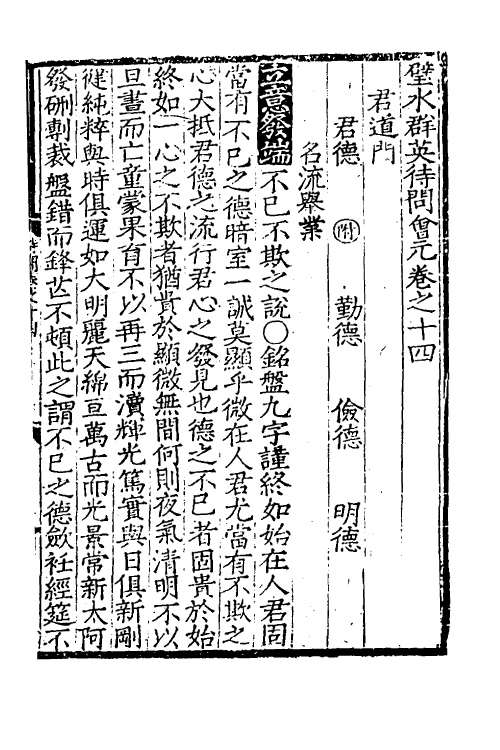 璧水群英待問會元卷之十四
君道門
君德 附 勤德 儉德 明德
名流舉業
立意發端 不已不欺之說○銘盤九字謹終如始在人君固
當有不已之德暗室一誠莫顯乎微在人君尤當有不欺之
心大抵君德之流行君心之發見也德之不已者固貴於始
終如一心之不欺者猶貴於顯微無間何則夜氣清明不以
旦晝而亡童蒙果育不以再三而瀆輝光篤實與日俱新剛
健純粹與時俱運如大明麗天綿亘萬古而光景常新太阿
發硎剸裁盤錯而鋒芒不頓此之謂不已之德斂衽經筵不